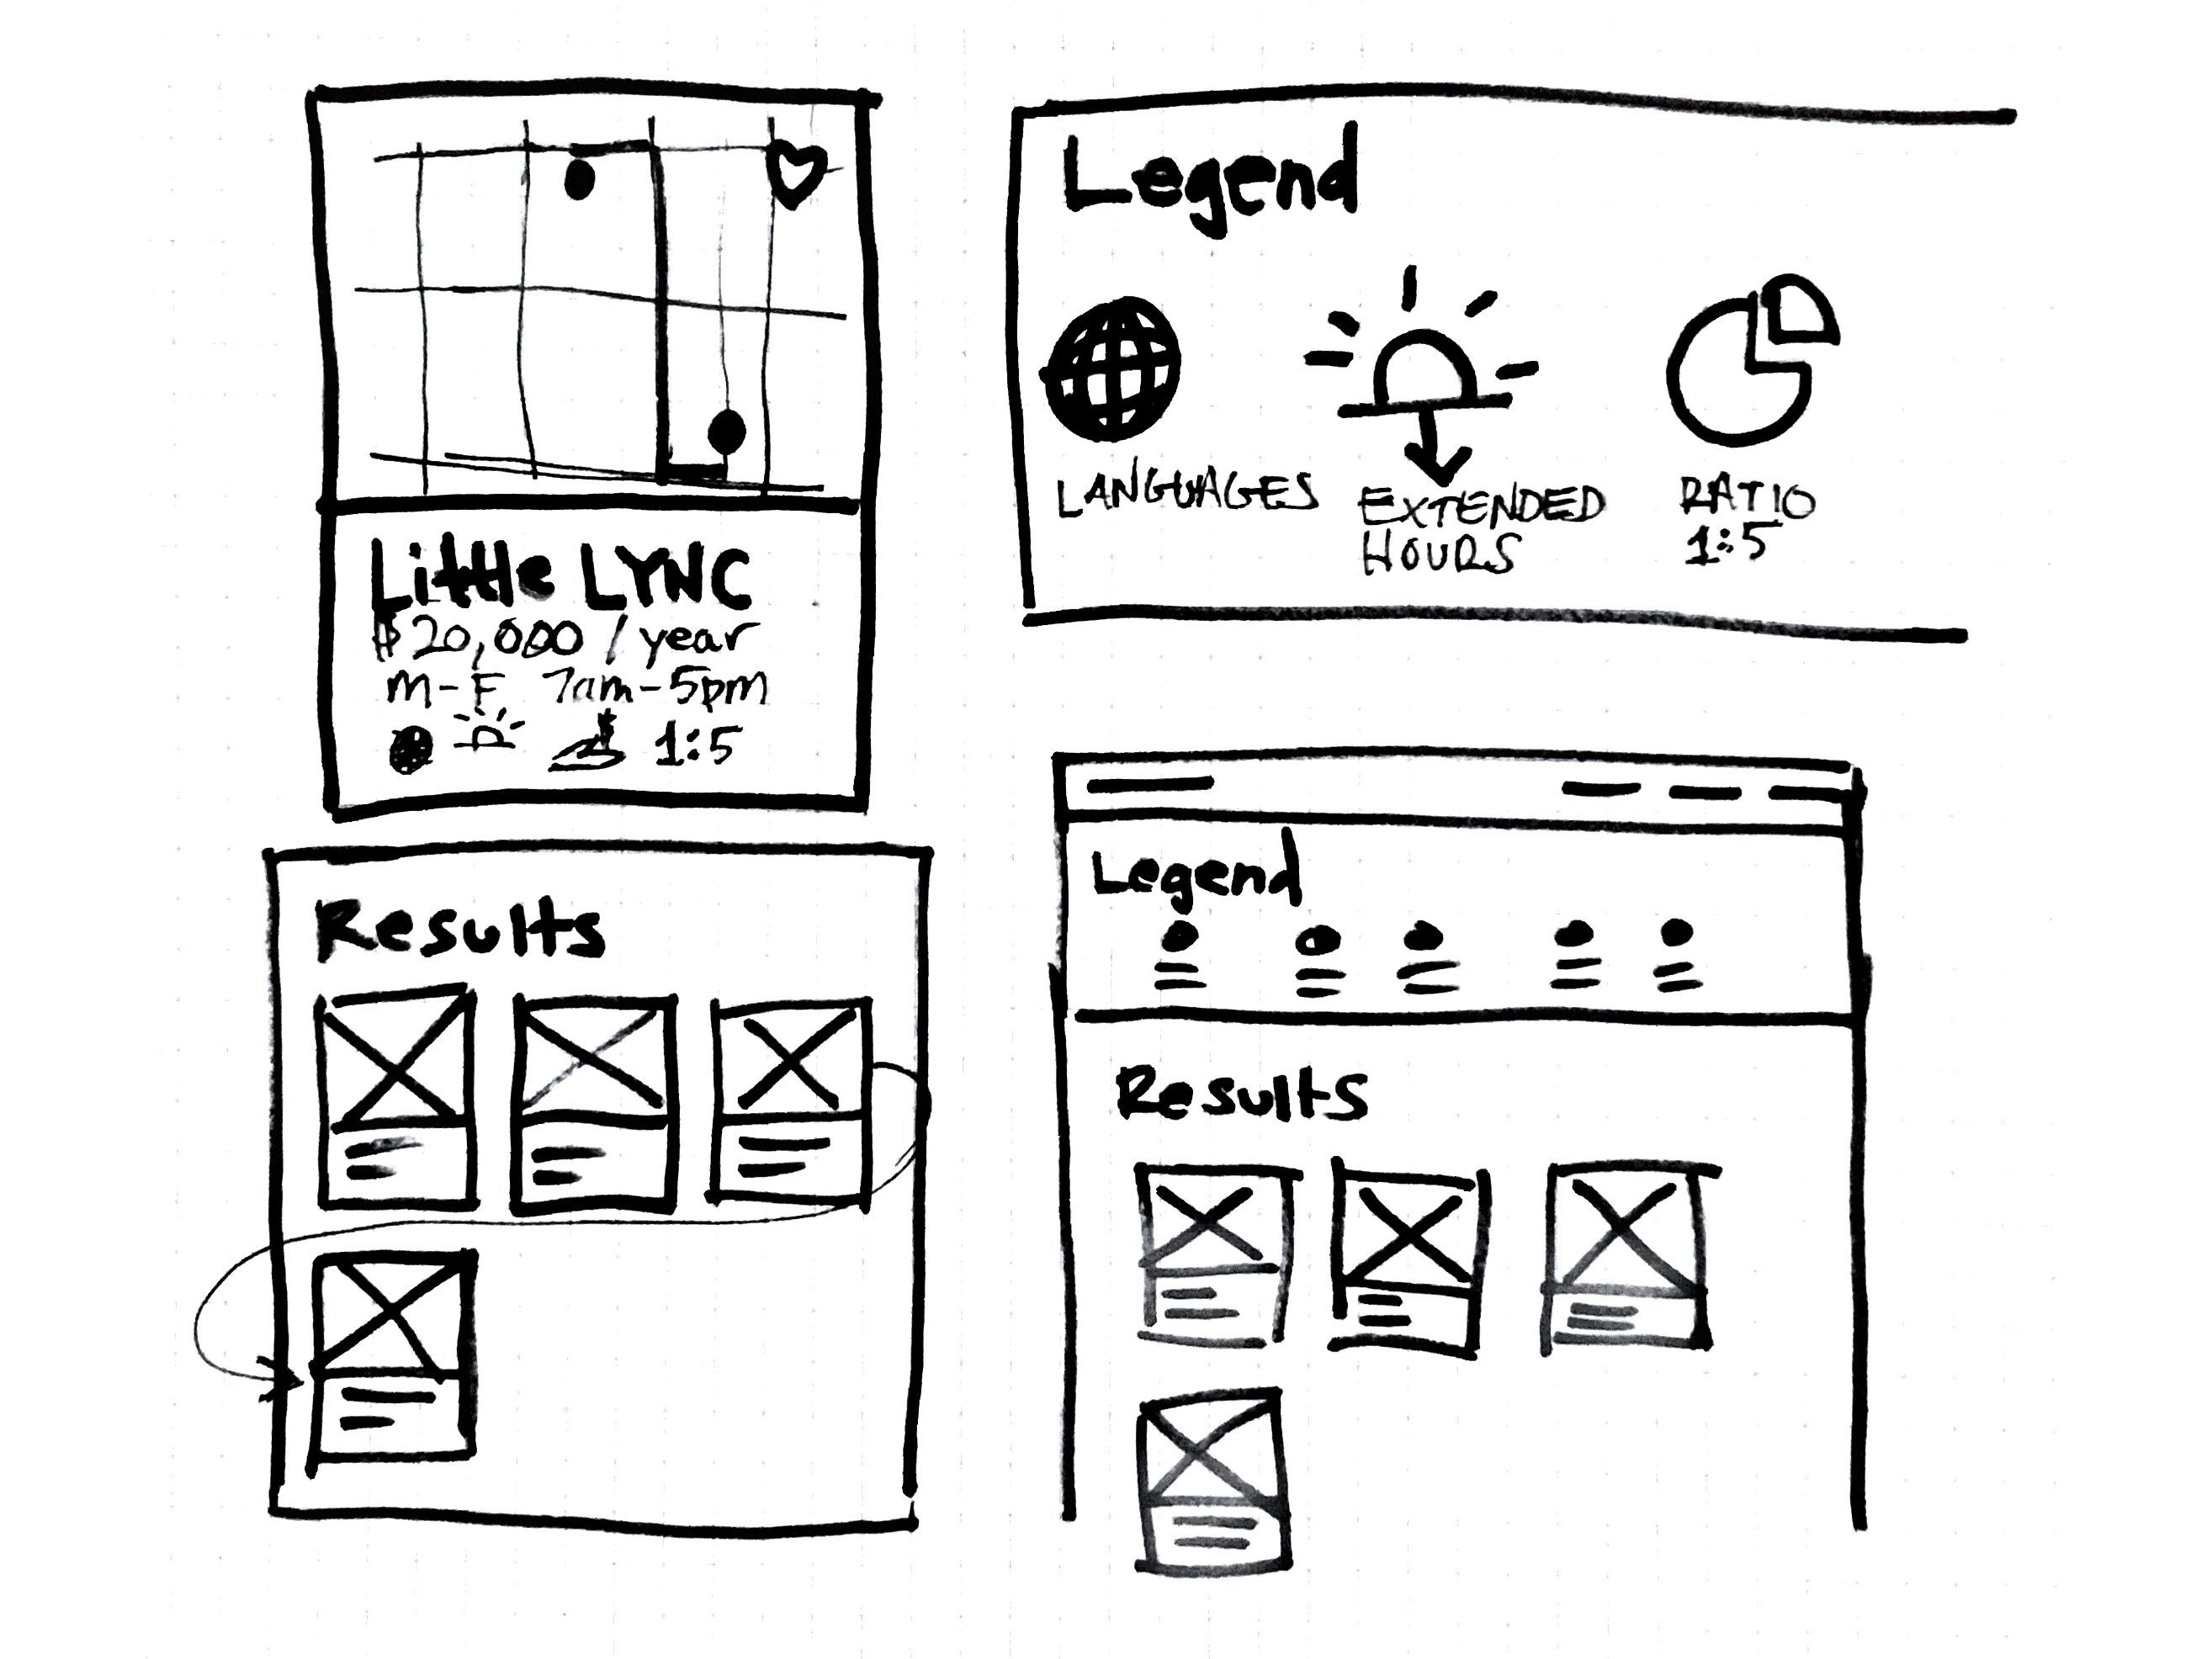 Little LYNC
$20,000 / year
M-F 7am-5pm
1:5
Legend
LANGUAGES
EXTENDED
HOURS
RATIO
1:5
Results
Legend
Results